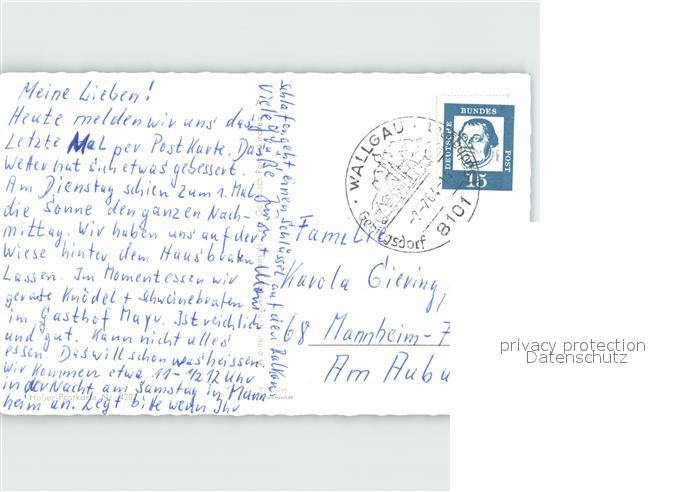 Meine Lieben!
Heute melden wir uns das
Letzte Mal per Postkarte. Das
Wetter hat sich etwas gebessert.
Am Dienstag schien zum 1. Mal
die Sonne den ganzen Nach-
mittag. Wir haben uns auf der
Wiese hinter dem Haus braten
Lassen. Im Moment essen wir
gerade Knödel + Schweinebraten
im Gasthof Mayr. Ist reichlich
und gut. Kann nicht alles
essen. Das will schon was heissen.
Wir kommen etwa 11-1/2 12 Uhr
in der Nacht am Samstag in Mann-
heim an. Legt bitte wenn Ihr
schlafen geht einen Schlüssel auf den Balkon
Viele Grüße
Huber-Postkarte Nr. 4207
WALLGAU
Gebirgsdorf
8101
DEUTSCHE
BUNDES
POST
15
Familie
Karola Giering,
68 Mannheim-
Am Aubu
privacy protection
Datenschutz